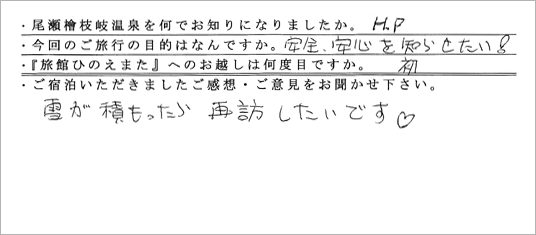 ・尾瀬檜枝岐温泉を何でお知りになりましたか。 H.P
・今回のご旅行の目的はなんですか。安全、安心を知らせたい!
・『旅館ひのえまた』へのお越しは何度目ですか。 初
・ご宿泊いただきましたご感想・ご意見をお聞かせ下さい。
雪が積もったら 再訪したいです♡